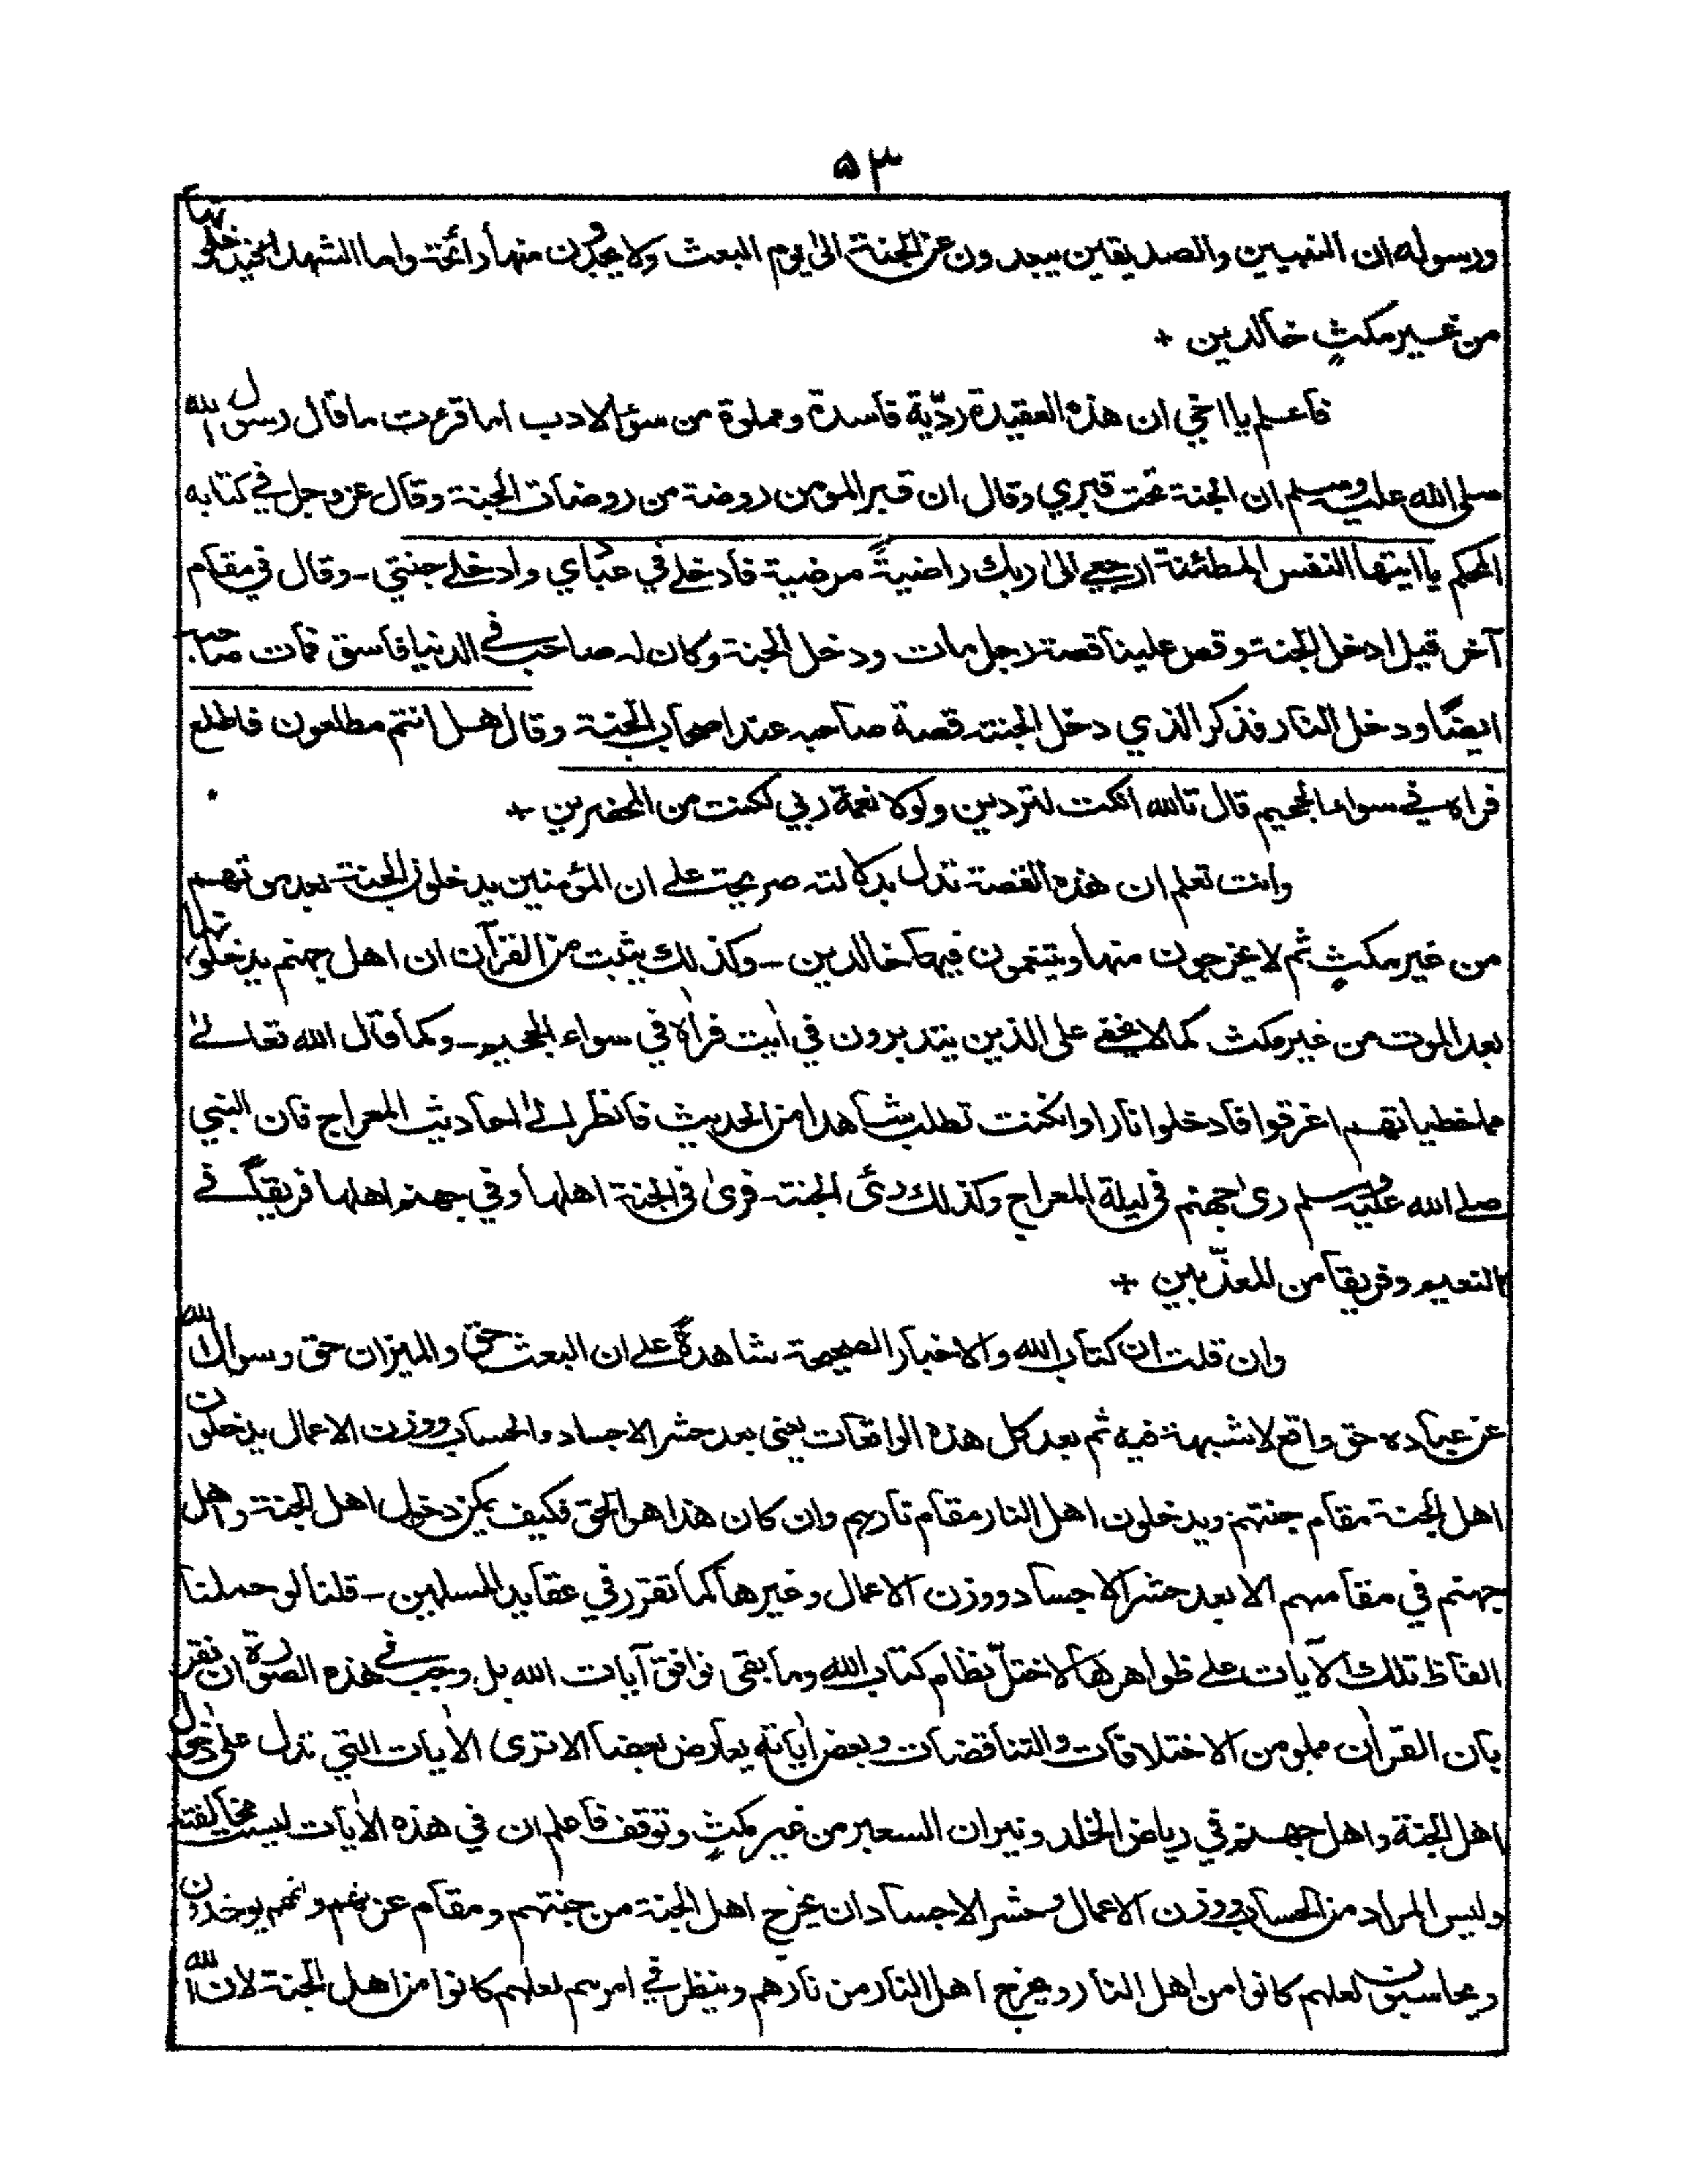 ۵۳
ورسوله ان النبيين والصديقين يبعدون عن الجنة الى يوم البعث ولا يجدون منها رائحة واما الشهداء فيدخلونها
من غير مكثٍ خالدين +
فاعلم يا اخي ان هذه العقيدة ردّية فاسدة ومملوة من سؤ الادب اما قرءت ما قال رسول الله
صلى الله عليه وسلم ان الجنة تحت قبري وقال ان قبر المومن روضة من روضات الجنة وقال عز وجل في كتابه
المحكم يا ايتها النفس المطئنة ارجعي الى ربك راضيةً مرضية فادخلي في عبادي وادخلي جنتي - وقال في مقام
آخر قيل ادخل الجنة وقص علينا قصة رجل مات ودخل الجنة وكان له صاحب في الدنيا فاسق فمات صاحبه
ايضًا ودخل النار فذكر الذي دخل الجنة قصة صاحبه عند اصحاب الجنة وقال هل انتم مطلعون فاطلع
فراٰه في سواء الجحيم قال تالله ان كدت لتردين ولولا نعمة ربي لكنت من المحضرين +
وانت تعلم ان هذه القصة تدل بدلالة صريحة على ان المؤمنين يدخلون الجنة بعد موتهم
من غير مكثٍ ثم لا يخرجون منها ويتنعمون فيها خالدين - وكذلك يثبت من القرآن ان اهل جهنم يدخلونها
بعد الموت من غير مكث كما لا يخفى على الذين يتدبرون في اٰيت فراٰه في سواء الجحيم - وكما قال الله تعالىٰ
مما خطيٰاتهم اغرقوا فادخلوا نارا وان كنت تطلب شاهدا من الحديث فانظر الىٰ احاديث المعراج فان النبي
صلى الله عليه وسلم رىٰ جهنم في ليلة المعراج وكذلك رئ الجنة - فرىٰ في الجنة اهلها وفي جهنم اهلها فريقًا في
النعيم وفريقا من المعذّبين +
وان قلت ان كتاب الله والاخبار الصحيحة شاهدةٌ على ان البعث حق والميزان حق وسوال الله
عن عباده حق واقع لا شبهة فيه ثم بعد كل هذه الواقعات يعنى بعد حشر الاجساد والحساب ووزن الاعمال يدخلون
اهل الجنة مقام جنتهم ويدخلون اهل النار مقام نارهم وان كان هذا هو الحق فكيف يمكن دخول اهل الجنة واهل
جهنم في مقامهم الا بعد حشر الاجساد ووزن الاعمال وغيرها كما تقرر في عقايد المسلمين - قلنا لو حملنا
الفاظ تلك الآيات على ظواهرها لاختلّ نظام كتاب الله وما بقى توافق آيات الله بل وجب في هذه الصورة ان نقر
بان القراٰن مملو من الاختلافات والتناقضات وبعض اٰياته يعارض بعضا الا ترى الاٰيات التي تدل على دخول
اهل الجنة واهل جهنم في رياض الخلد ونيران السعير من غير مكثٍ وتوقف فاعلم ان في هذه الاٰيات ليست مخالفة
وليس المراد من الحساب ووزن الاعمال وحشر الاجساد ان يخرج اهل الجنة من جنتهم ومقام عزتهم وانهم يوخذون
ويحاسبون لعلهم كانوا من اهل النار ويخرج اهل النار من نارهم وينظر في امرهم لعلهم كانوا من اهل الجنة لان الله